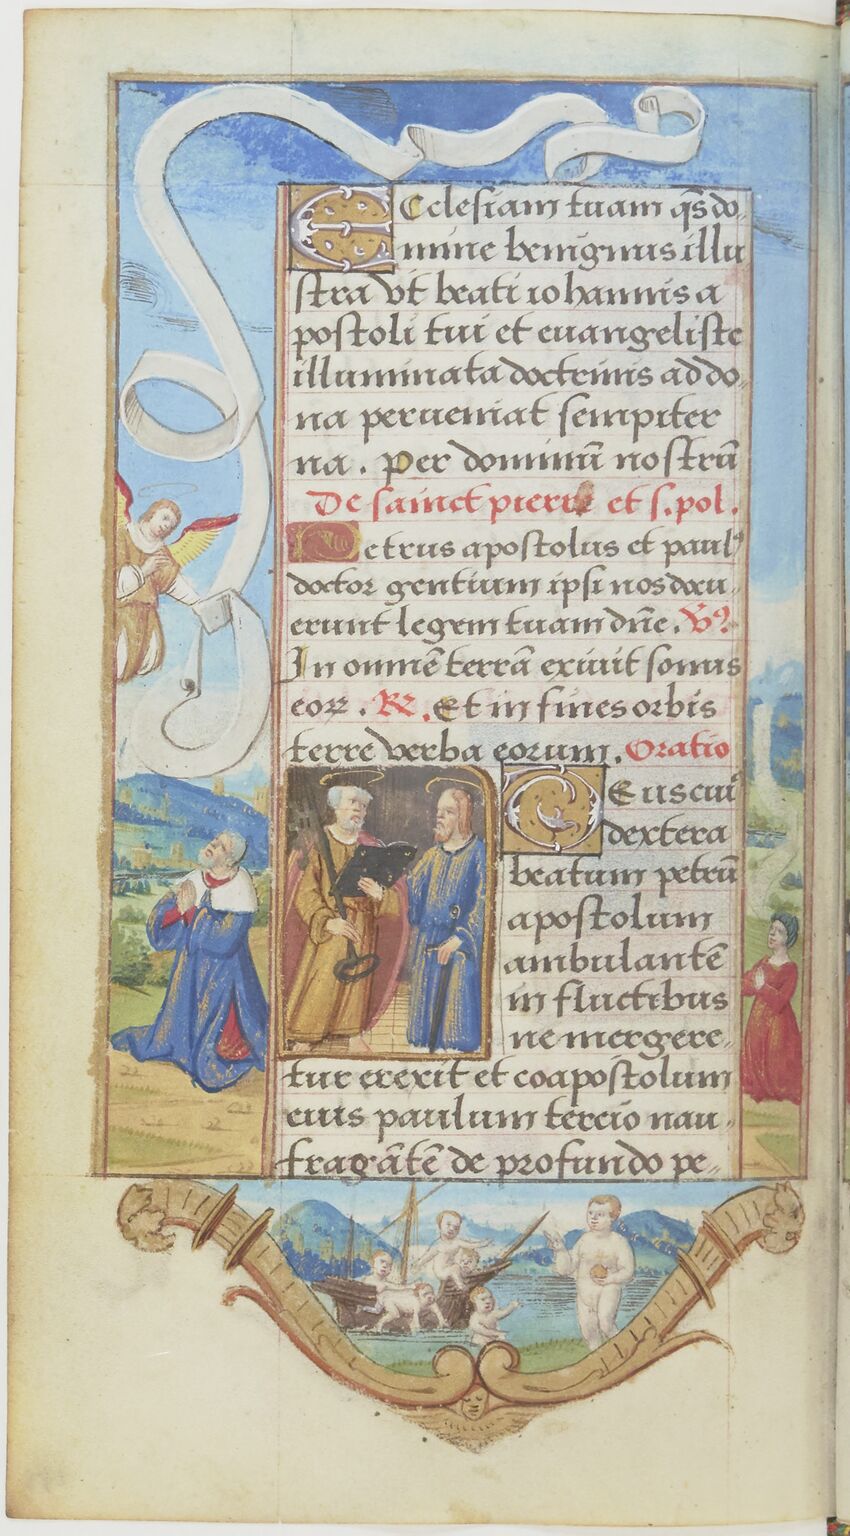 Ecclesiam tuam q̄s do
mine benignus illu
stra vt beati iohannis a
postoli tui et euangeliste
illuminata doctrinis ad do
na perueniat sempiter
na. Per dominū nostrū
De sainct pierre et s. pol.
Petrus apostolus et paulꝰ
doctor gentium ipsi nos docu
erunt legem tuam dn̄e. V̕.
In omnē terrā exiuit sonus
eoꝝ. R̕. Et in fines orbis
terre verba eorum. Oratio
Deus cuiꝰ
dextera
beatum petrū
apostolum
ambulantē
in fluctibus
ne mergere
tur erexit et coapostolum
eius paulum tercio nau
fragātē de profundo pe